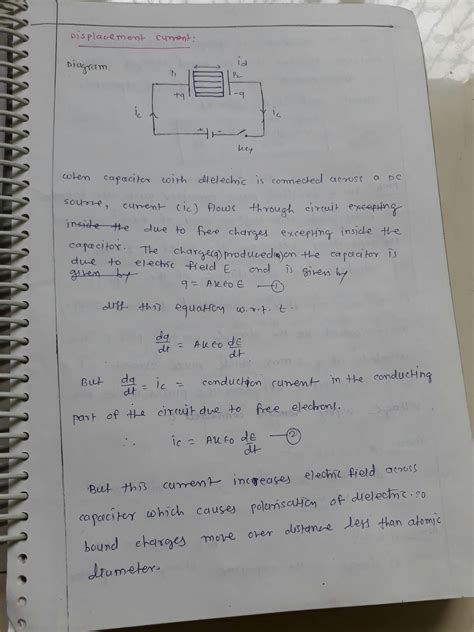 Displacement current:
Diagram
id
P1
P2
+q
-q
ic
ic
+ -
key
when capacitor with dielectric is connected across a DC
source, current (ic) flows through circuit excepting
inside the due to free charges excepting inside the
capacitor. The charge(q) produced on the capacitor is
due to electric field E and is given by
given by
q = AKε0E —①
diff this equation w.r.t. t.
dq/dt = AKε0 dE/dt
But dq/dt = ic = conduction current in the conducting
part of the circuit due to free electrons.
∴ ic = AKε0 dE/dt —②
But this current increases electric field across
capacitor which causes polarisation of dielectric. so
bound charges move over distance less than atomic
diameter.